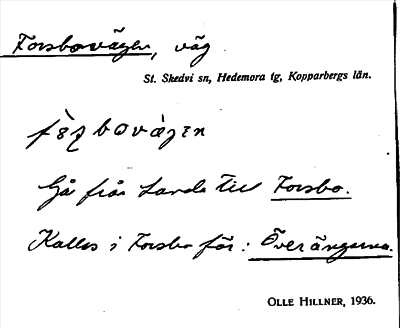 Forsbovägen, väg
St. Skedvi sn, Hedemora tg, Kopparbergs län.
Gå från Landa till Forsbo.
Kallas i Forsbo för: Överängarna.
OLLE HILLNER, 1936.